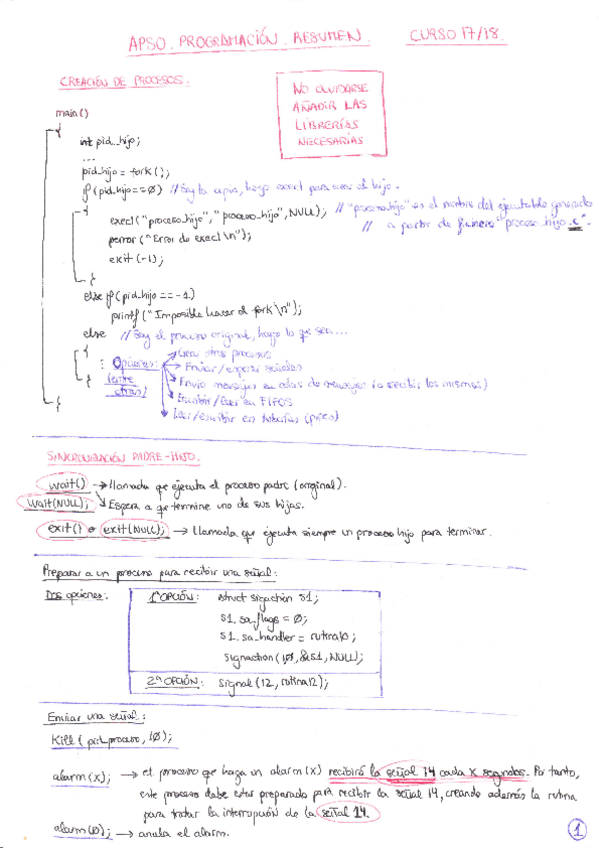 APSO. PROGRAMACIÓN. RESUMEN. CURSO 17/18.
CREACIÓN DE PROCESOS.
NO OLVIDARSE
AÑADIR LAS
LIBRERÍAS
NECESARIAS
main()
{
int pid_hijo;
...
pid_hijo = fork();
if (pid_hijo == 0) // Soy la copia, hago execl para crear al hijo.
{
execl("proceso_hijo", "proceso_hijo", NULL); // "proceso_hijo" es el nombre del ejecutable generado
// a partir de fichero "proceso_hijo.c"
perror ("Error de execl\n");
exit (-1);
}
else if (pid_hijo == -1)
printf ("Imposible hacer el fork\n");
else // Soy el proceso original, hago lo que sea...
{
Opciones: Crear otros procesos
(entre Enviar/esperar señales
otras) Envío mensajes en colas de mensajes (o recibir los mismos)
Escribir/leer en FIFOS
Leer/escribir en tuberías (pipes)
}
}
SINCRONIZACIÓN PADRE-HIJO.
wait() → Llamada que ejecuta el proceso padre (original).
wait(NULL); Espera a que termine uno de sus hijos.
exit() o exit(NULL); → Llamada que ejecuta siempre un proceso hijo para terminar.
Preparar a un proceso para recibir una señal:
Dos opciones: 1ª OPCIÓN: struct sigaction s1;
s1.sa_flags = 0;
s1.sa_handler = rutina10;
sigaction (10, &s1, NULL);
2ª OPCIÓN: signal (12, rutina12);
Enviar una señal:
Kill (pid_proceso, 10);
alarm (x); → el proceso que haga un alarm(x) recibirá la señal 14 cada x segundos. Por tanto,
este proceso debe estar preparado para recibir la señal 14, creando además la rutina
para tratar la interrupción de la señal 14.
alarm(0); → anula el alarm.
1